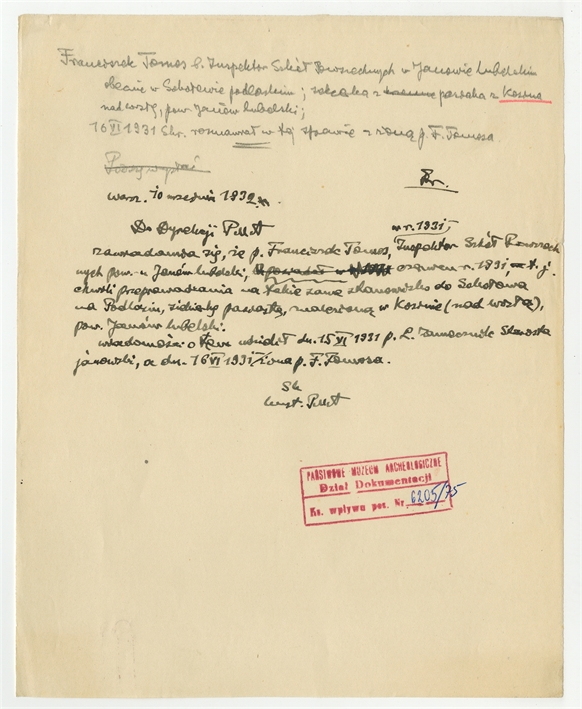 Franciszek Tomos b. Inspektor Szkół Powszechnych w Janowie Lubelskim
obecnie w Sokołowie podlaskim; z parzaka z Kosina
nad wzstą, pow. Janów Lubelski;
16 VI 1931 Skr. rozmawiał w tej sprawie z żoną p. F. Tomosa.
Warsz. 10 wrzesień 1932 r.
Do Dyrekcji PMA w r. 1931
zawiadamia się, że p. Franciszek Tomos, Inspektor Szkół Powszech
nych pow. w Janów Lubelski, czerwcu r. 1931, t. j.
chwili przeprowadzenia na takie same stanowisko do Sokołowa
na Podlasiu, znalezioną w Kosinie (nad wzstą),
pow. Janów Lubelski.
wiadomości o tem udzielił dn. 15 VI 1931 p. L. Starosta
janowski, a dn. 16 VI 1931 żona p. F. Tomosa.
Sk
PAŃSTWOWE MUZEUM ARCHEOLOGICZNE
Dział Dokumentacji
Ks. wpływu poz. Nr. 6205/75